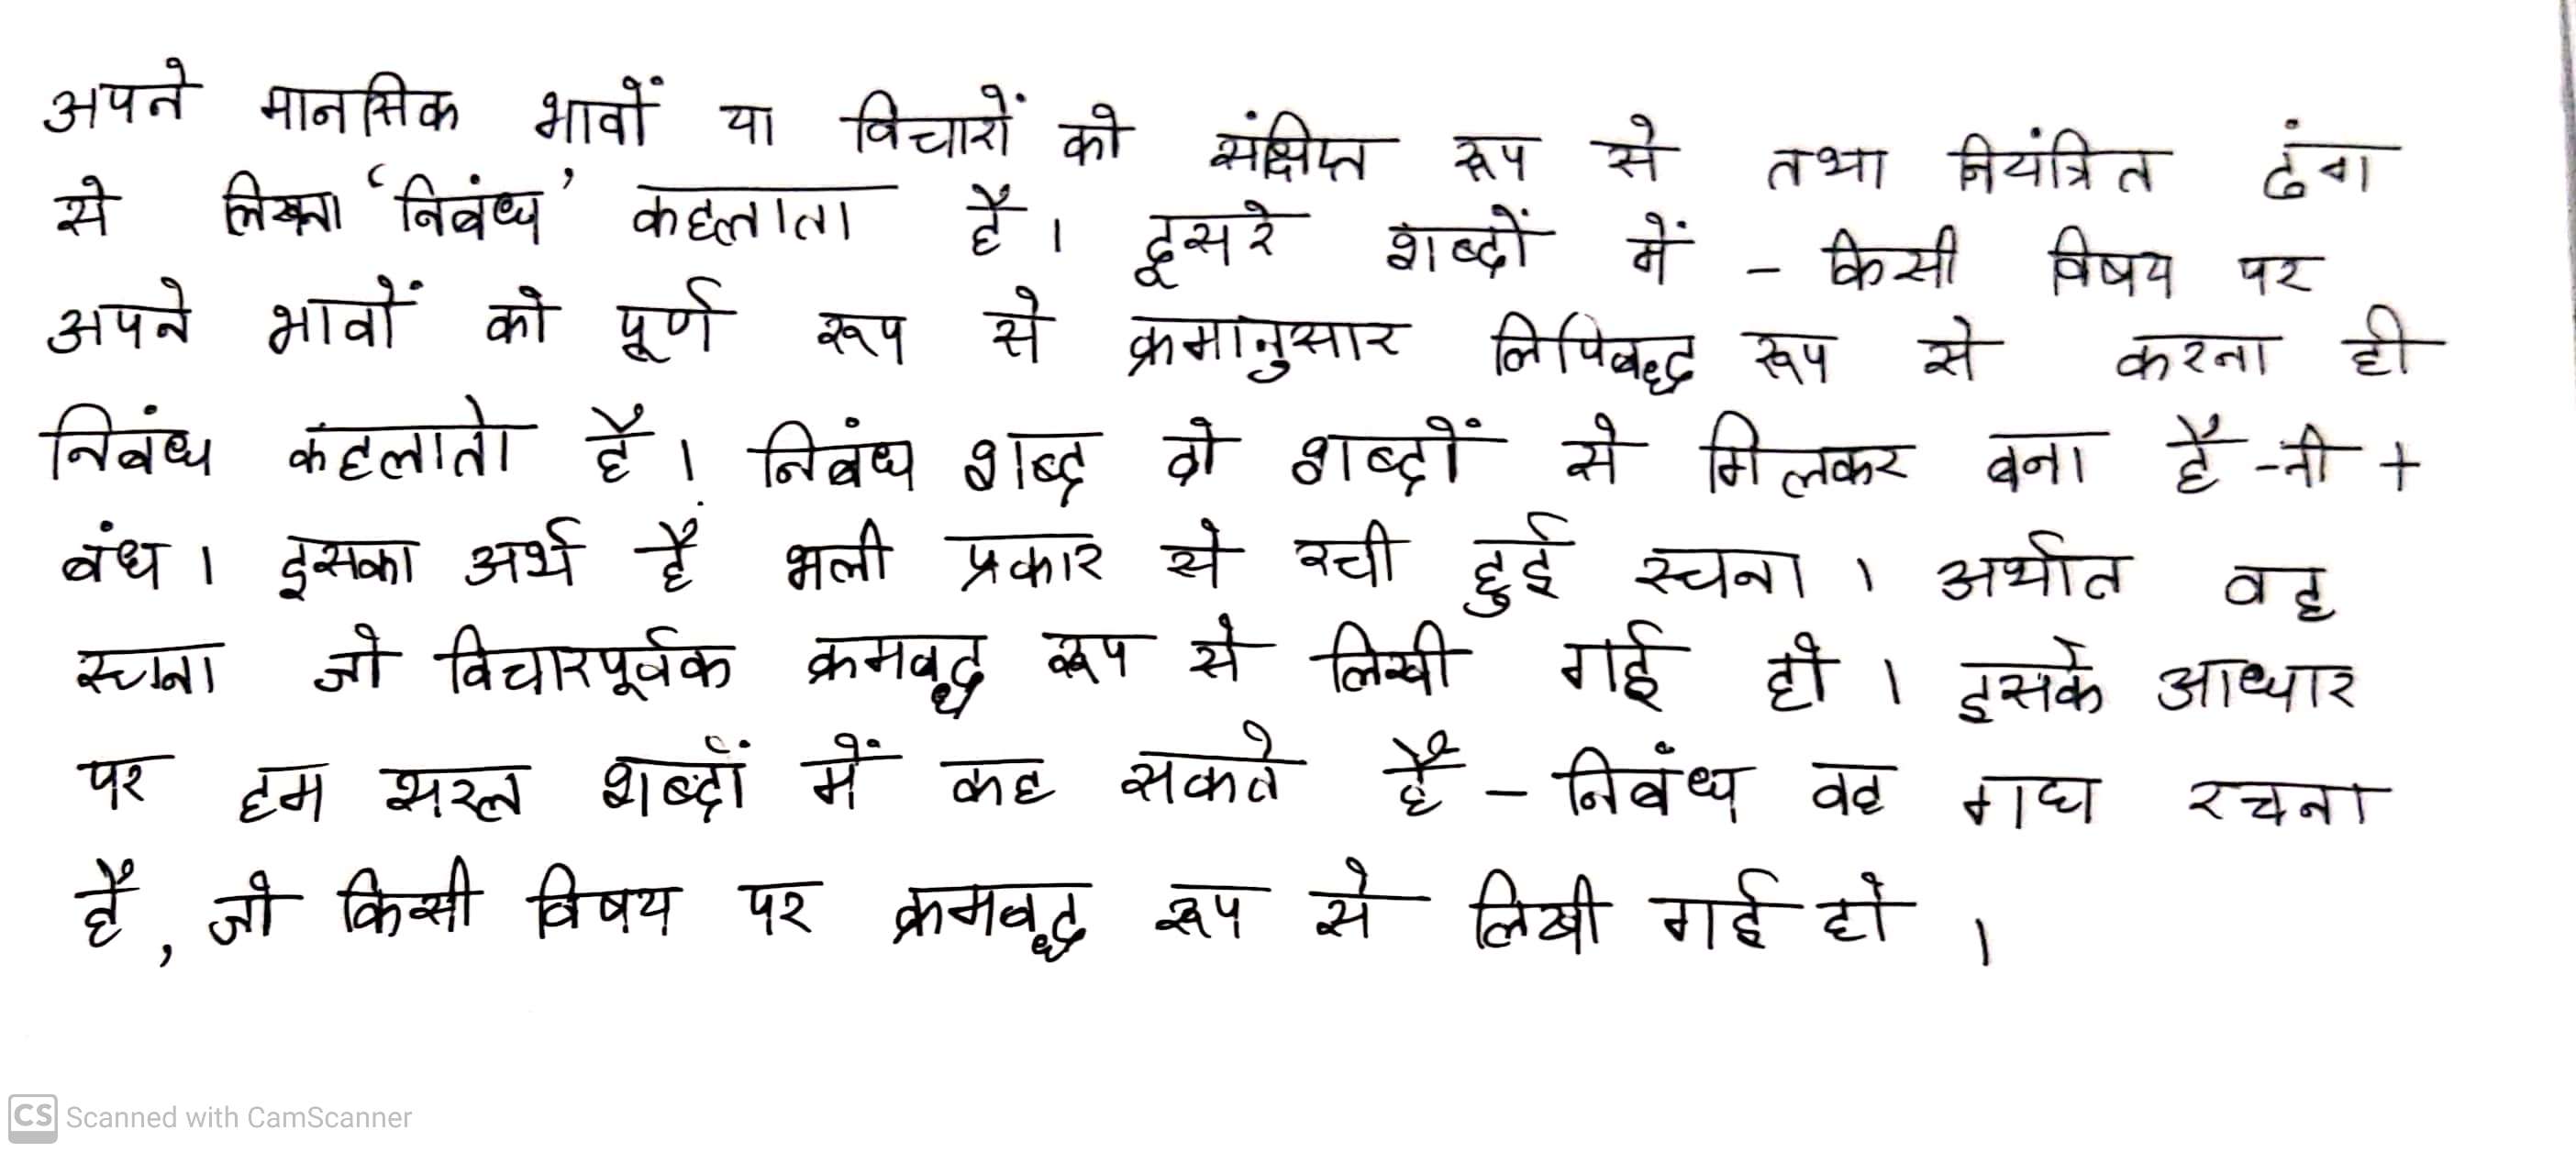 अपने मानसिक भावों या विचारों को संक्षिप्त रूप से तथा नियंत्रित ढंग
से लिखना ‘निबंध’ कहलाता है। दूसरे शब्दों में - किसी विषय पर
अपने भावों को पूर्ण रूप से क्रमानुसार लिपिबद्ध रूप से करना ही
निबंध कहलाता है। निबंध शब्द दो शब्दों से मिलकर बना है -नी +
बंध। इसका अर्थ है भली प्रकार से रची हुई रचना। अर्थात वह
रचना जो विचारपूर्वक क्रमबद्ध रूप से लिखी गई हो। इसके आधार
पर हम सरल शब्दों में कह सकते है - निबंध वह गद्य रचना
है, जो किसी विषय पर क्रमबद्ध रूप से लिखी गई हो।
CS Scanned with CamScanner